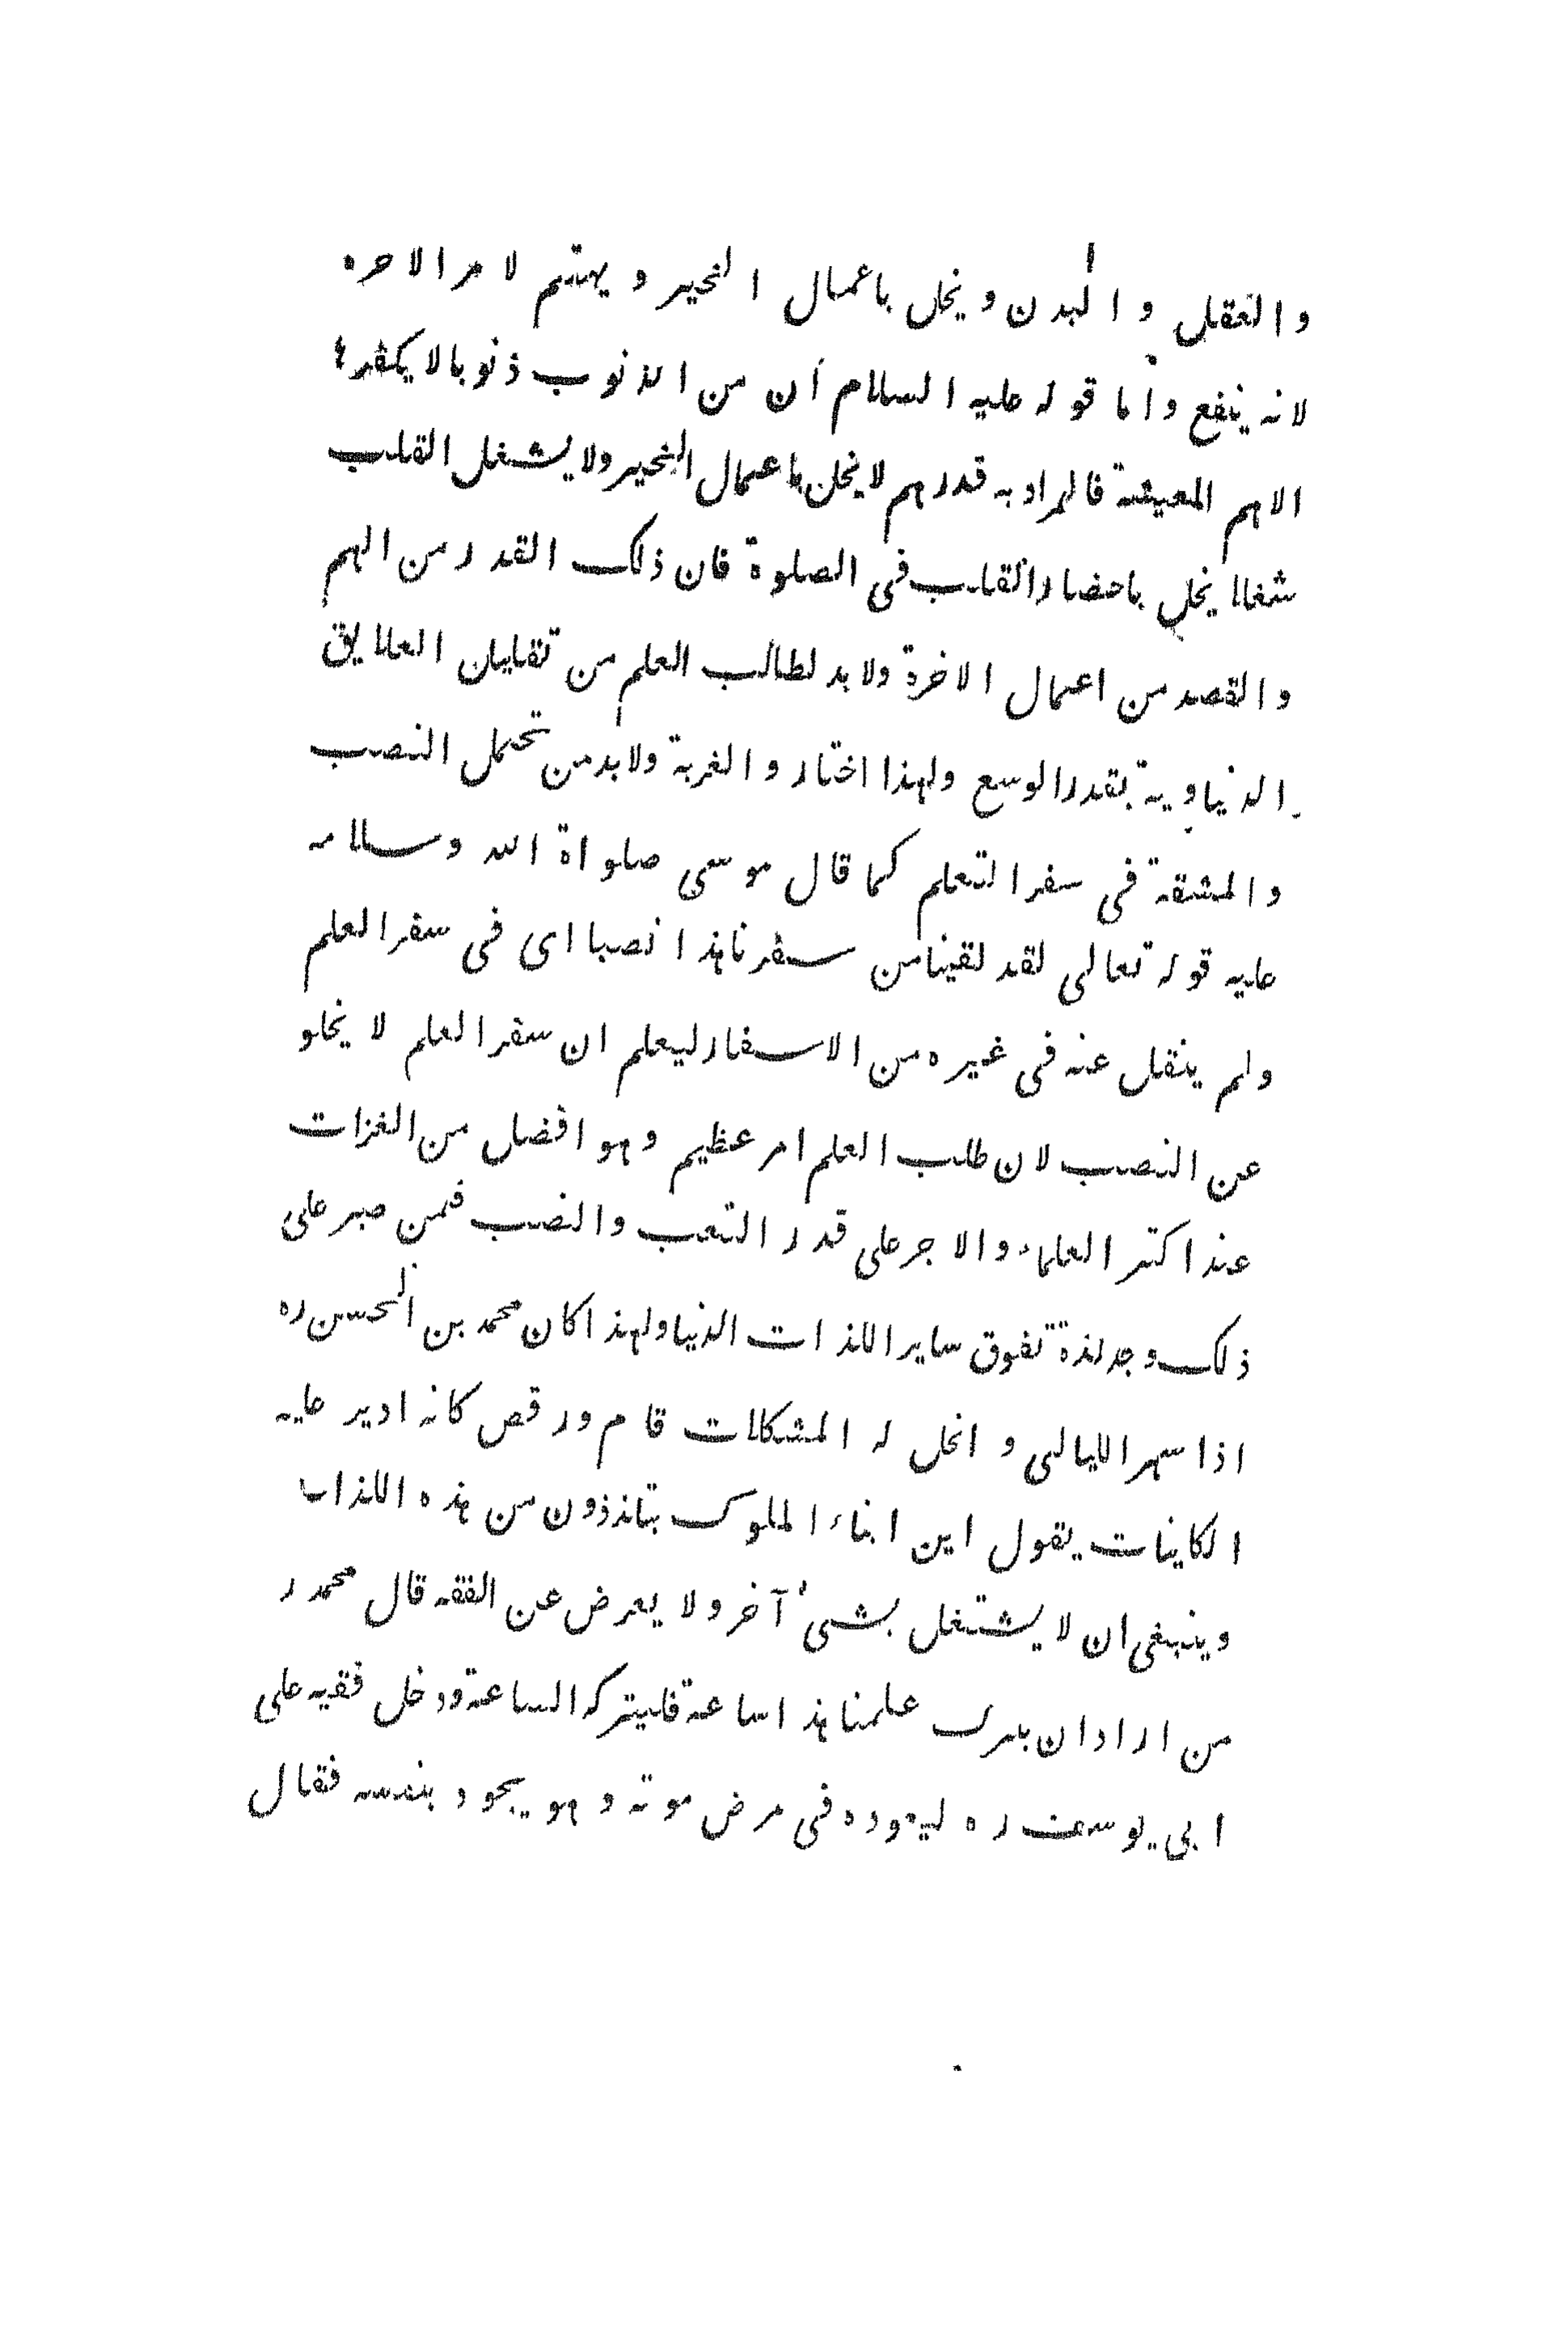 والعقل والبدن ويخل باعمال الخير ويهتم لامر الاخره
لانه ينفع واما قوله عليه السلام ان من الذنوب ذنوبا لا يكفرها
الاهم المعيشة فالمراد به قدرهم لايخل باعمال الخير ولا يشغل القلب
شغلا يخل باحضار القلب فى الصلوة فان ذلك القدر من الهم
والقصد من اعمال الاخرة ولابد لطالب العلم من تقليل العلايق
الدنياوية بقدر الوسع ولهذا اختار و الغربة ولابد من تحمل النصب
والمشقة فى سفر التعلم كما قال موسى صلواة الله وسلامه
عليه قوله تعالى لقد لقينا من سفرنا هذا نصبا اى فى سفر العلم
ولم ينقل عنه فى غيره من الاسفار ليعلم ان سفر العلم لا يخلو
عن النصب لان طلب العلم امر عظيم وهو افضل من الغزات
عند اكثر العلماء والاجر على قدر التعب والنصب فمن صبر على
ذلك وجد لذة تفوق ساير اللذات الدنيا ولهذا كان محمد بن الحسن ره
اذا سهر الليالى و انحل له المشكلات قام ورقص كانه ادير عليه
الكاينات يقول اين ابناء الملوك بتلذذون من هذه اللذات
وينبغى ان لا يشتغل بشىء آخر ولا يعرض عن الفقه قال محمد ر
من اراد ان يترك علمنا هذا ساعة فليتركه الساعة ودخل فقيه على
ابى يوسف ره ليعوده فى مرض موته وهو يجود بنفسه فقال